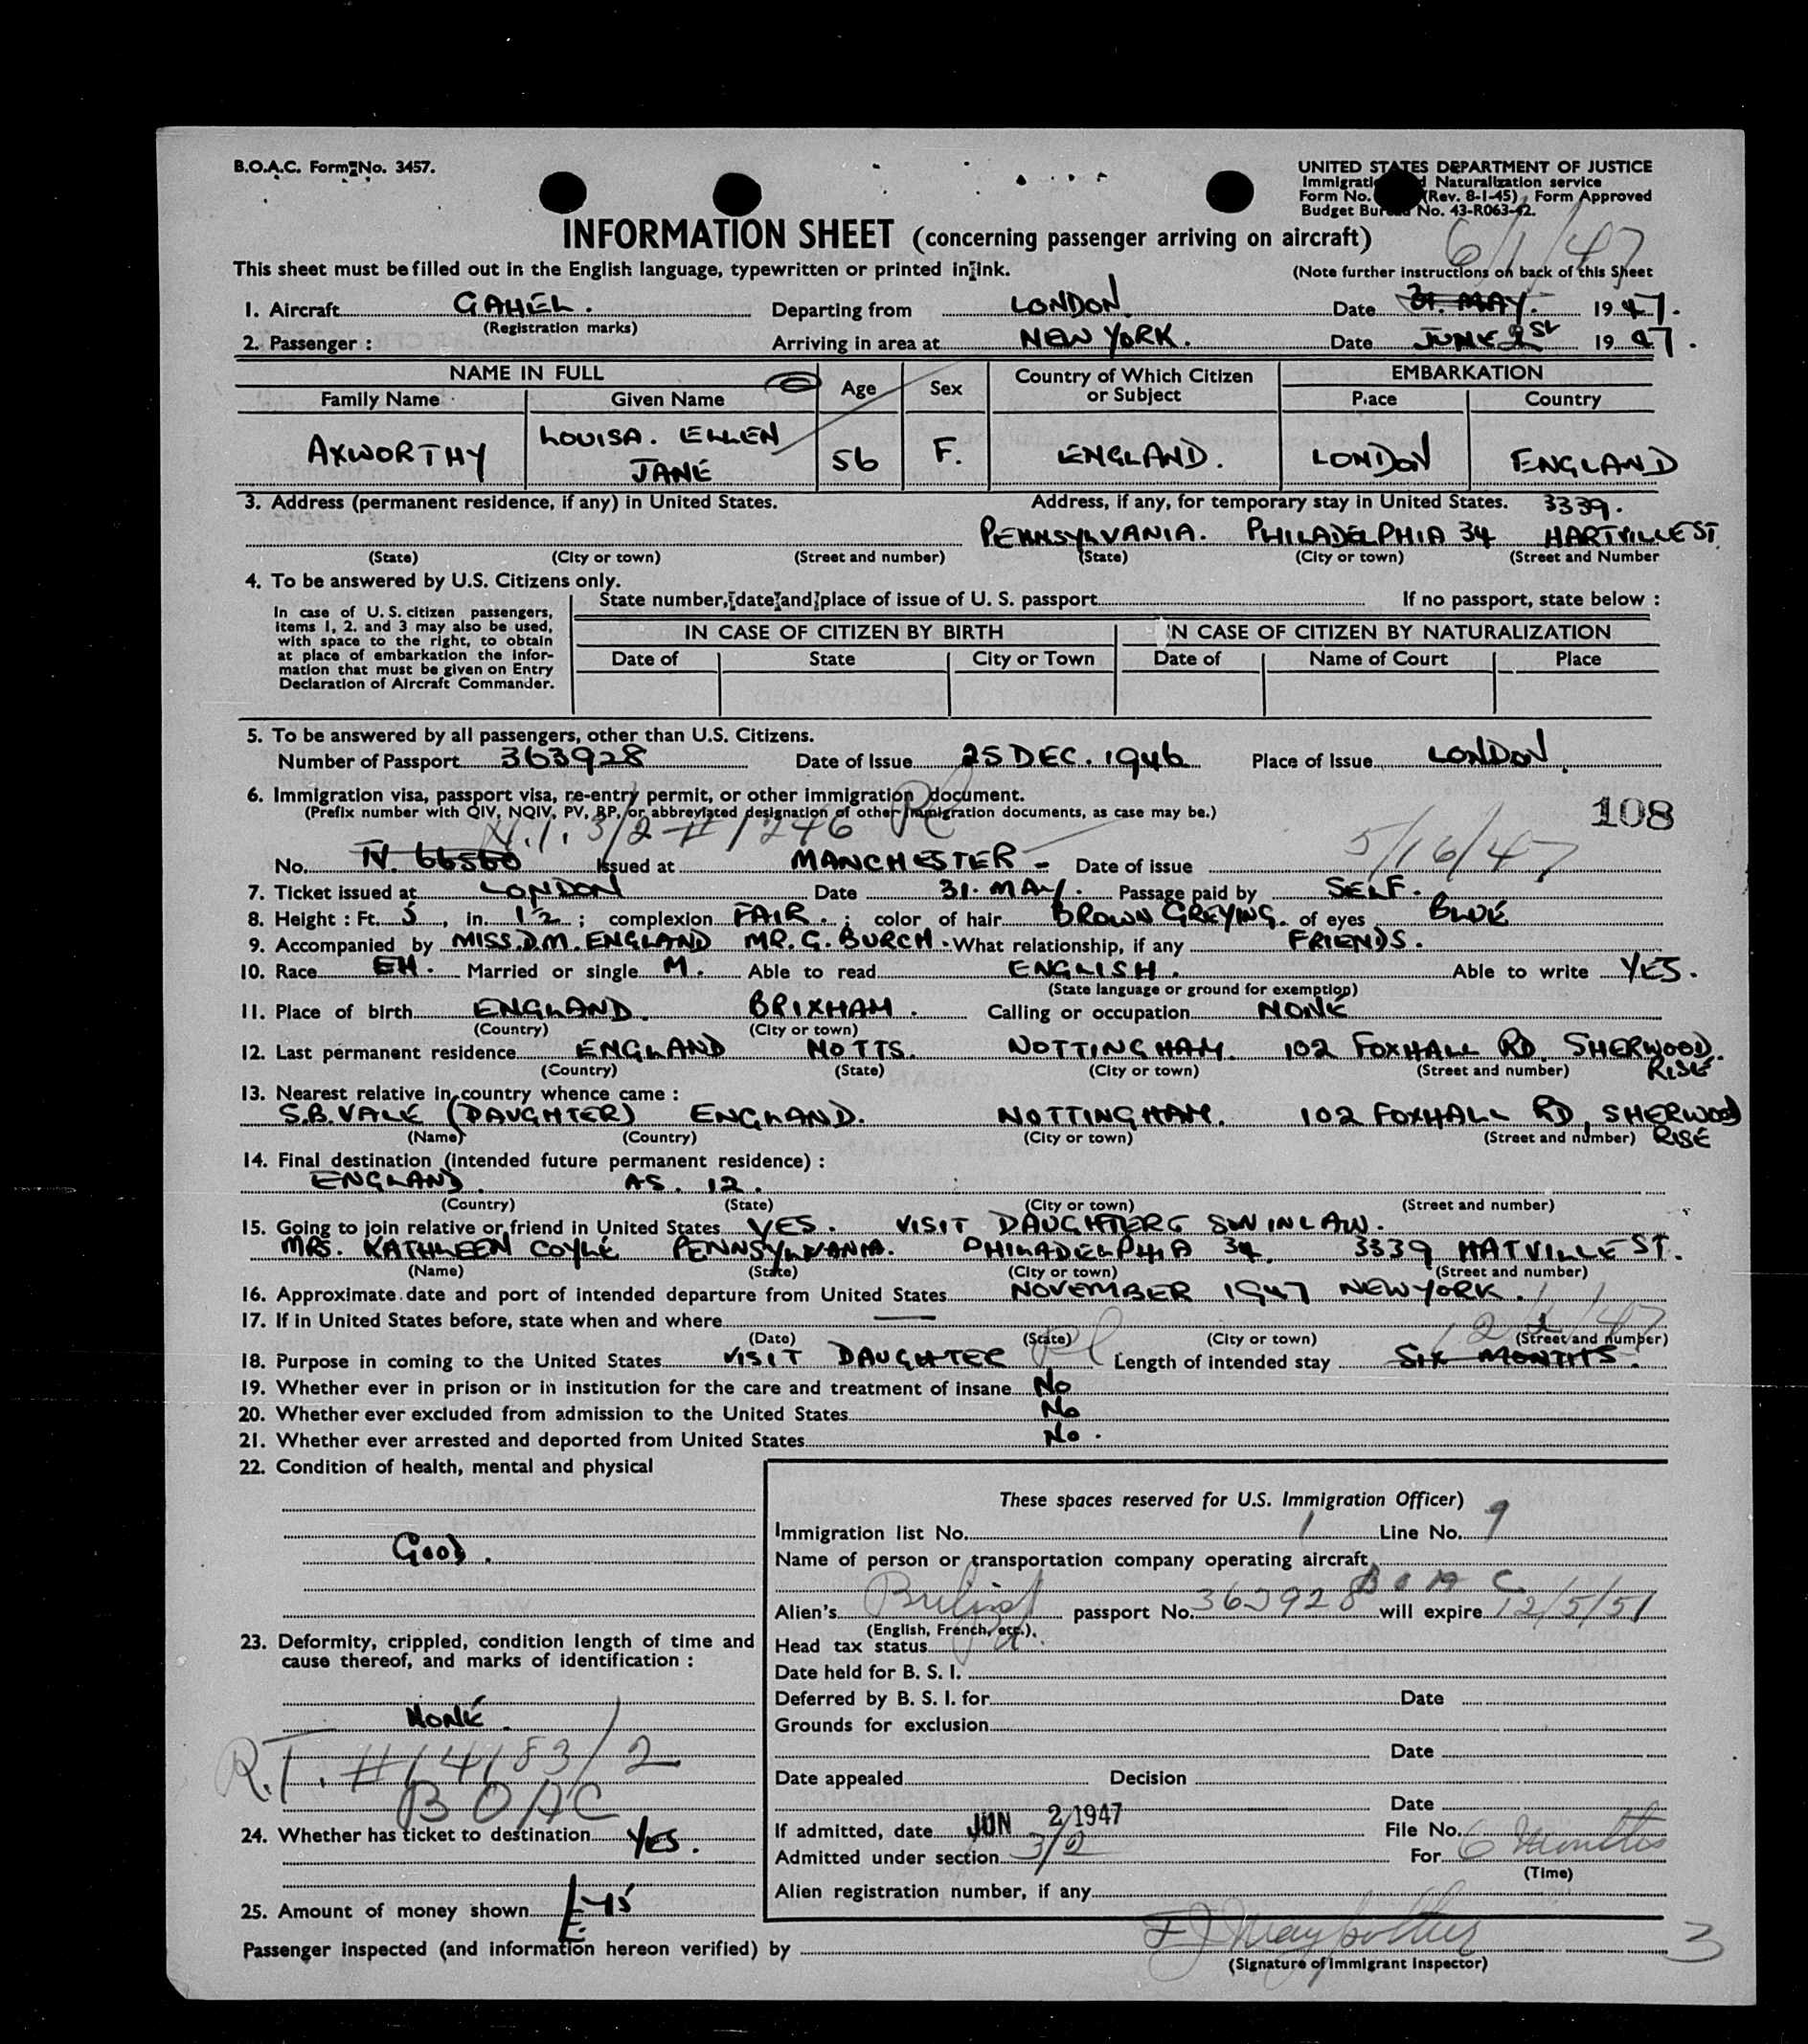 B.O.A.C. Form No. 3457.
UNITED STATES DEPARTMENT OF JUSTICE
Immigrati d Naturalization service
Form No. (Rev. 8-1-45) Form Approved
Budget Bur No. 43-R063-42.
6/1/47
INFORMATION SHEET (concerning passenger arriving on aircraft)
This sheet must be filled out in the English language, typewritten or printed in ink. (Note further instructions on back of this Sheet
1. Aircraft GAHEL. Departing from LONDON. Date 31. MAY. 1947.
(Registration marks)
2. Passenger : Arriving in area at NEW YORK. Date JUNE 1947.
NAME IN FULL Age Sex Country of Which Citizen or Subject EMBARKATION
Family Name Given Name Place Country
AXWORTHY LOUISA. ELLEN JANE 56 F. ENGLAND. LONDON ENGLAND
3. Address (permanent residence, if any) in United States. Address, if any, for temporary stay in United States. 3339.
PENNSYLVANIA. PHILADELPHIA 34 HARTVILLE ST
(State) (City or town) (Street and number) (State) (City or town) (Street and Number
4. To be answered by U.S. Citizens only.
In case of U.S. citizen passengers,
items 1, 2. and 3 may also be used,
with space to the right, to obtain
at place of embarkation the infor-
mation that must be given on Entry
Declaration of Aircraft Commander.
State number, date and place of issue of U. S. passport If no passport, state below :
IN CASE OF CITIZEN BY BIRTH IN CASE OF CITIZEN BY NATURALIZATION
Date of State City or Town Date of Name of Court Place
5. To be answered by all passengers, other than U.S. Citizens.
Number of Passport 363928 Date of Issue 25 DEC. 1946 Place of Issue LONDON.
6. Immigration visa, passport visa, re-entry permit, or other immigration document.
(Prefix number with QIV, NQIV, PV, RP, or abbreviated designation of other immigration documents, as case may be.) 108
3/2 # 1246
No. IV. 66560 Issued at MANCHESTER - Date of issue 5/16/47
7. Ticket issued at LONDON Date 31. MAY. Passage paid by SELF.
8. Height : Ft. 5, in. 1½ ; complexion FAIR. ; color of hair BROWN GREYING. of eyes BLUE
9. Accompanied by MISS. D.M. ENGLAND MR. G. BURCH. What relationship, if any FRIENDS.
10. Race EH. Married or single M. Able to read ENGLISH. Able to write YES.
(State language or ground for exemption)
11. Place of birth ENGLAND. BRIXHAM. Calling or occupation NONE
(Country) (City or town)
12. Last permanent residence ENGLAND NOTTS. NOTTINGHAM. 102 FOXHALL RD. SHERWOOD. RISE
(Country) (State) (City or town) (Street and number)
13. Nearest relative in country whence came :
S.B. VALE (DAUGHTER) ENGLAND. NOTTINGHAM. 102 FOXHALL RD, SHERWOOD RISE
(Name) (Country) (City or town) (Street and number)
14. Final destination (intended future permanent residence) :
ENGLAND. AS. 12.
(Country) (State) (City or town) (Street and number)
15. Going to join relative or friend in United States YES. VISIT DAUGHTER & SON IN LAW.
MRS. KATHLEEN COYLE PENNSYLVANIA. PHILADELPHIA 34. 3339 HATVILLE ST.
(Name) (State) (City or town) (Street and number)
16. Approximate date and port of intended departure from United States NOVEMBER 1947 NEW YORK.
17. If in United States before, state when and where —
(Date) (State) (City or town) (Street and number)
18. Purpose in coming to the United States VISIT DAUGHTER Length of intended stay SIX MONTHS.
19. Whether ever in prison or in institution for the care and treatment of insane No
20. Whether ever excluded from admission to the United States No
21. Whether ever arrested and deported from United States No.
22. Condition of health, mental and physical
Good.
23. Deformity, crippled, condition length of time and
cause thereof, and marks of identification :
NONE.
R.T. #14183/2
BOAC
24. Whether has ticket to destination YES.
25. Amount of money shown £45
These spaces reserved for U.S. Immigration Officer)
Immigration list No. 1 Line No. 9
Name of person or transportation company operating aircraft
B O A C
Alien's British passport No. 363928 will expire 12/5/51
(English, French, etc.).
Head tax status
Date held for B. S. I.
Deferred by B. S. I. for Date
Grounds for exclusion
Date
Date appealed Decision
Date
If admitted, date JUN 2 1947 File No.
Admitted under section 3/2 For 6 Months
(Time)
Alien registration number, if any
Passenger inspected (and information hereon verified) by
(Signature of Immigrant Inspector)
3